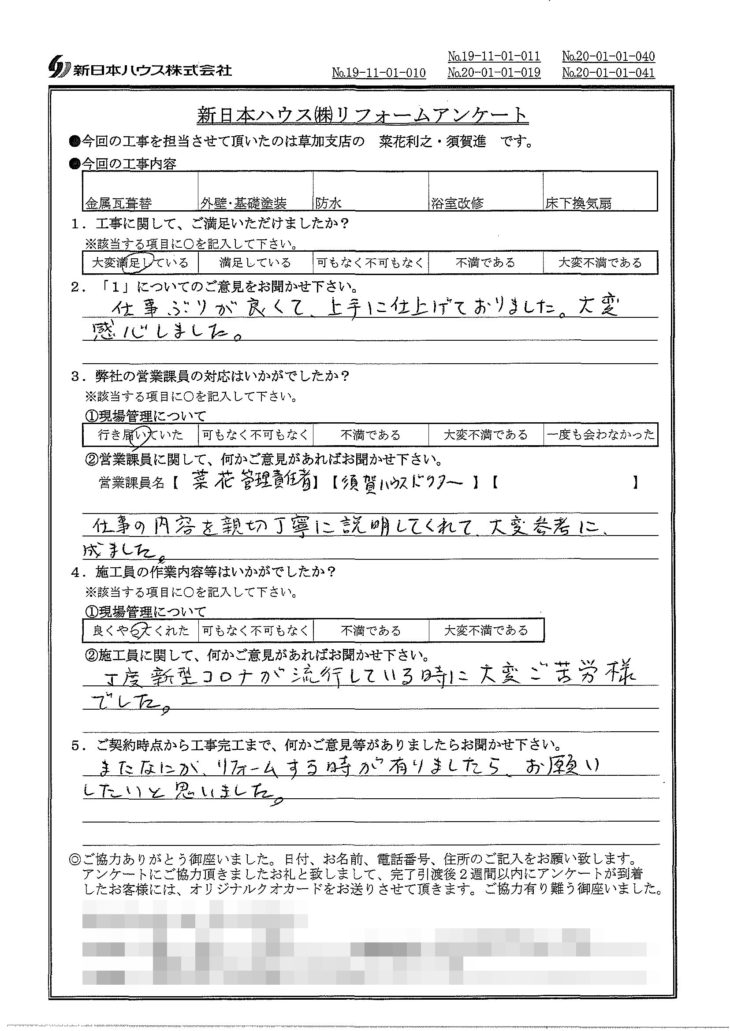 新日本ハウス株式会社
№19-11-01-011 №20-01-01-040
№19-11-01-010 №20-01-01-019 №20-01-01-041
新日本ハウス㈱リフォームアンケート
●今回の工事を担当させて頂いたのは草加支店の 菜花利之・須賀進 です。
●今回の工事内容
金属瓦葺替 外壁・基礎塗装 防水 浴室改修 床下換気扇
1．工事に関して、ご満足いただけましたか？
※該当する項目に○を記入して下さい。
大変満足している 満足している 可もなく不可もなく 不満である 大変不満である
2．「1」についてのご意見をお聞かせ下さい。
仕事ぶりが良くて、上手に仕上げておりました。大変
感心しました。
3．弊社の営業課員の対応はいかがでしたか？
※該当する項目に○を記入して下さい。
①現場管理について
行き届いていた 可もなく不可もなく 不満である 大変不満である 一度も会わなかった
②営業課員に関して、何かご意見があればお聞かせ下さい。
営業課員名【 菜花管理責任者】【須賀ハウスドクター 】【 】
仕事の内容を親切丁寧に説明してくれて、大変参考に、
成ました。
4．施工員の作業内容等はいかがでしたか？
※該当する項目に○を記入して下さい。
①現場管理について
良くやってくれた 可もなく不可もなく 不満である 大変不満である
②施工員に関して、何かご意見があればお聞かせ下さい。
丁度新型コロナが流行している時に大変ご苦労様
でした。
5．ご契約時点から工事完工まで、何かご意見等がありましたらお聞かせ下さい。
またなにか、リフォームする時が有りましたら、お願い
したいと思いました。
◎ご協力ありがとう御座いました。日付、お名前、電話番号、住所のご記入をお願い致します。
アンケートにご協力頂きましたお礼と致しまして、完了引渡後２週間以内にアンケートが到着
したお客様には、オリジナルクオカードをお送りさせて頂きます。ご協力有り難う御座いました。